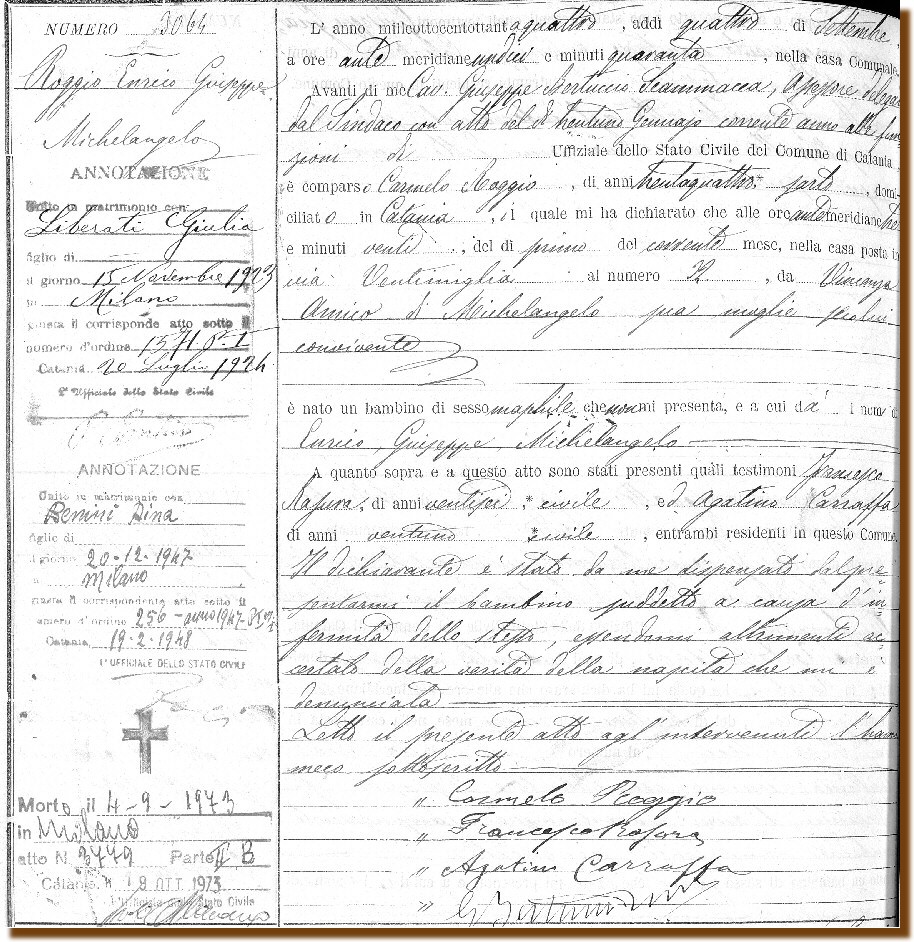 NUMERO 3064
Roggio Enrico Guiseppe
Michelangelo
ANNOTAZIONE
Unito in matrimonio con
Liberati Giulia
figlio di
il giorno 15 Novembre 1923
in Milano
giusta il corrisponde atto sotto il
numero d'ordine 1571 P. I
Catania 20 Luglio 1924
L'Ufficiale dello Stato Civile
ANNOTAZIONE
Unito in matrimonio con
Benini Dina
figlio di
il giorno 20-12-1947
a Milano
giusta il corrispondente atto sotto il
numero d'ordine 256 - anno 1947-
Catania 19-2-1948
L'UFFICIALE DELLO STATO CIVILE
Morto il 4-9-1973
in Milano
atto N. 3779 Parte II B
Catania 18 OTT 1973
L'Ufficiale dello Stato Civile
L'anno milleottocentottantaquattro, addì quattro di Settembre,
a ore ante meridiane undici e minuti quaranta, nella casa Comunale.
Avanti di me Cav. Giuseppe Bertuccio Scammacca, Assessore delegato
dal Sindaco con atto del dì trentuno Gennajo corrente anno alle fun
zioni di Uffiziale dello Stato Civile del Comune di Catania,
è comparso Carmelo Roggio, di anni trentaquattro * sarto, domi-
ciliato in Catania, il quale mi ha dichiarato che alle ore antemeridiane tre
e minuti venti, del dì primo del corrente mese, nella casa posta in
via Ventimiglia al numero 72, da Vincenza
Amico di Michelangelo sua moglie seco lui
convivente
è nato un bambino di sesso maschile che non mi presenta, e a cui dà i nomi di
Enrico, Guiseppe, Michelangelo
A quanto sopra e a questo atto sono stati presenti quali testimoni Francesco
Rasura, di anni ventisei * civile, ed Agatino Carraffa
di anni ventuno * civile, entrambi residenti in questo Comune.
Il dichiarante è stato da me dispensato dal pre-
sentarmi il bambino suddetto a causa d'in
fermità dello stesso, essendomi altrimenti ac
certato della verità della nascita che mi è
denunciata
Letto il presente atto agl'intervenuti l'hanno
meco sottoscritto
" Carmelo Roggio
" Francesco Rasora
" Agatino Carraffa
"